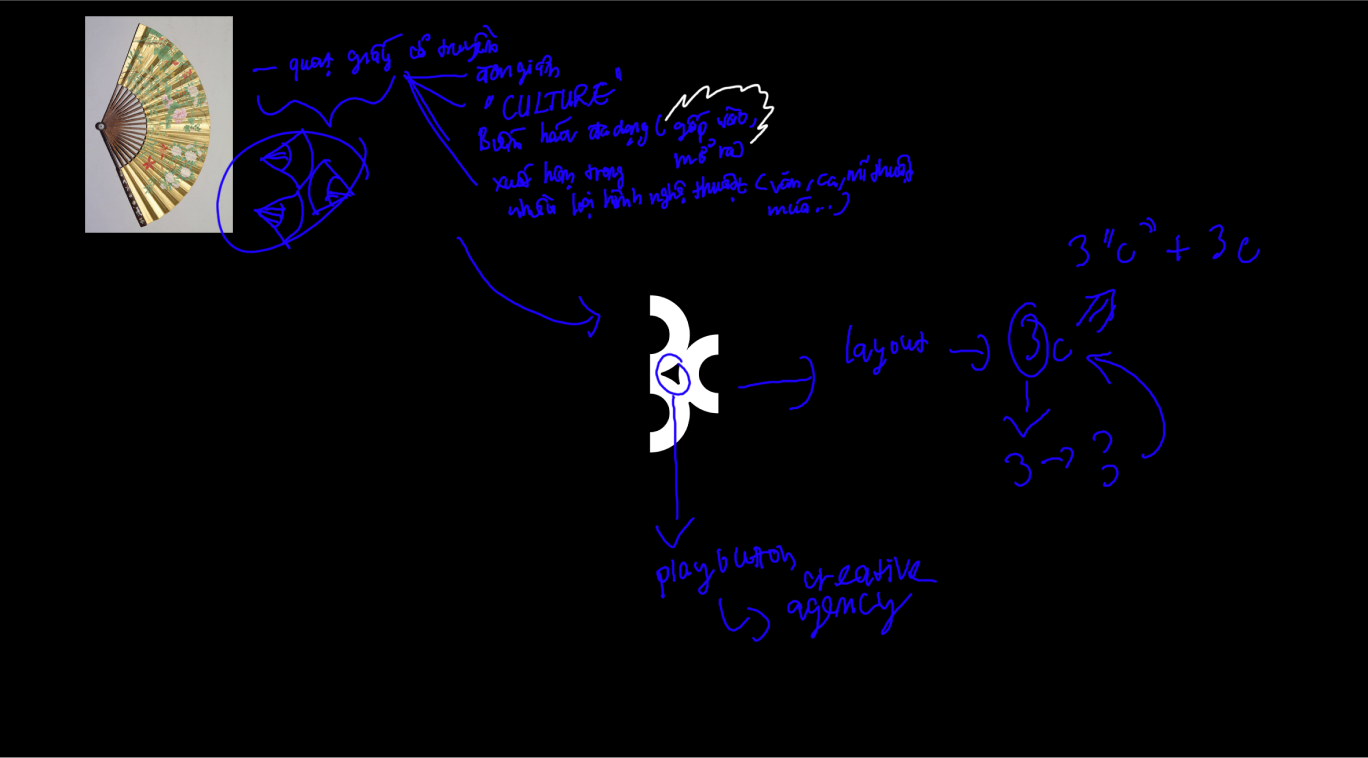 — quạt giấy cổ truyền
đơn giản
"CULTURE"
Biến hóa đa dạng (gấp vào,
mở ra)
xuất hiện trong
nhiều loại hình nghệ thuật (văn, ca, mĩ thuật
múa...)
3 "c" + 3c
layout → 3c
3 →
play button
creative
agency